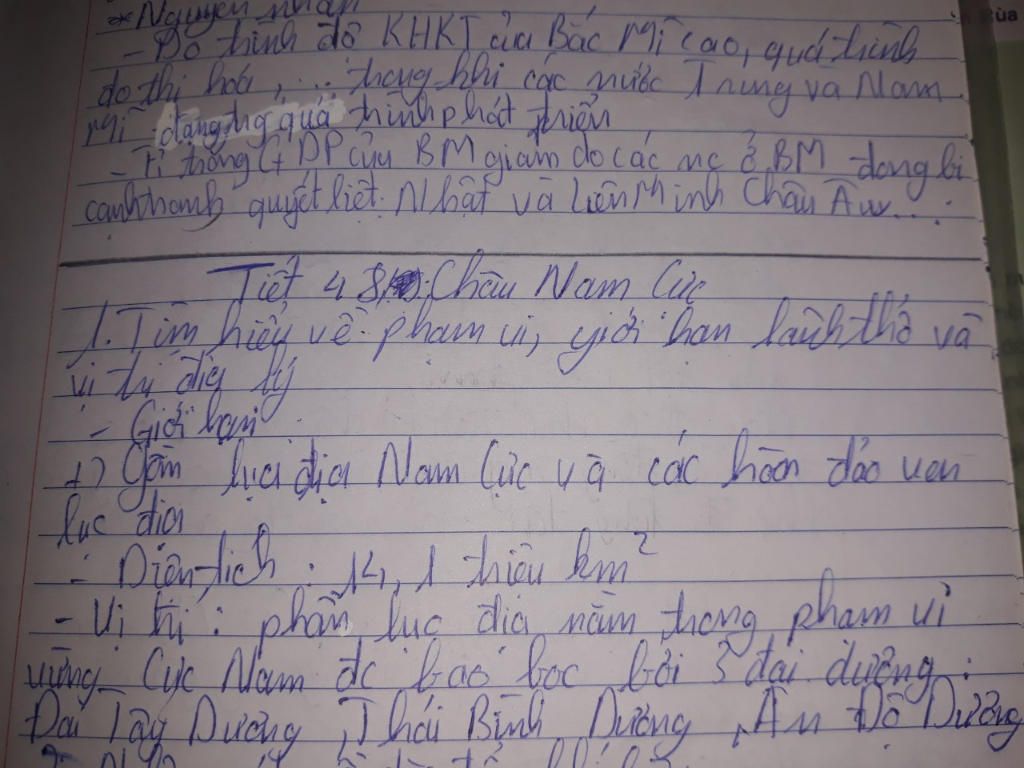 * Nguyên nhân
- Do trình độ KHKT của Bắc Mĩ cao, quá trình
đô thị hoá, ... trong khi các nước Trung và Nam
Mĩ đang trg quá trình phát triển
- Tỉ trọng GDP của BM giảm do các nc ở BM đang bị
cạnh tranh quyết liệt. Nhật và Liên Minh Châu Âu...
Tiết 48: Châu Nam Cực
1. Tìm hiểu về phạm vi, giới hạn lãnh thổ và
vị trí địa lý
- Giới hạn
+) Gồm lục địa Nam Cực và các hòn đảo ven
lục địa
- Diện tích : 14,1 triệu km²
- Vị trí : phần lục địa nằm trong phạm vi
vùng Cực Nam đc bao bọc bởi 3 đại dương :
Đại Tây Dương, Thái Bình Dương, Ấn Độ Dương